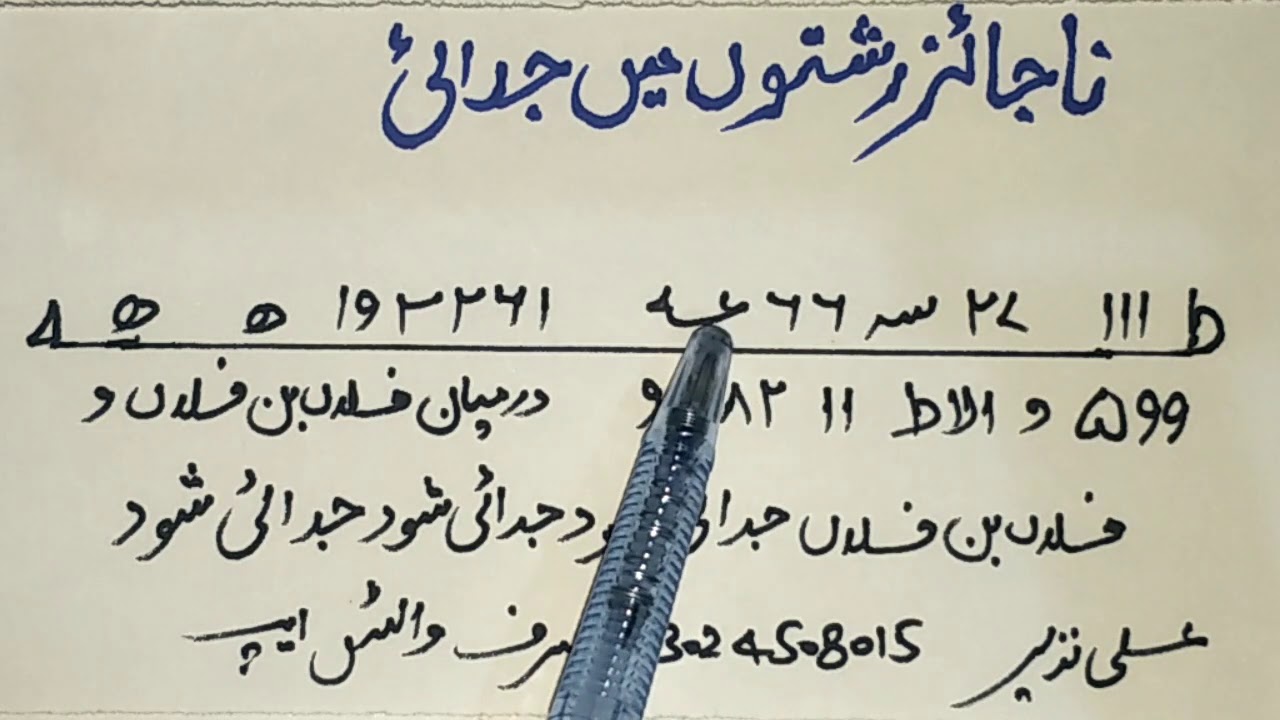 ناجائز رشتوں میں جدائی
ط ااا ۲۷ سہ ۶۶ ۱۹۳۲۶۱ ھ ھ
۵۹۹ و الاط ۱۱ ۸۲ ۹ درمیان فلاں بن فلاں و
فلاں بن فلاں جدائی شود جدائی شود جدائی شود
علی نذیر 3024508015 صرف واٹس ایپ